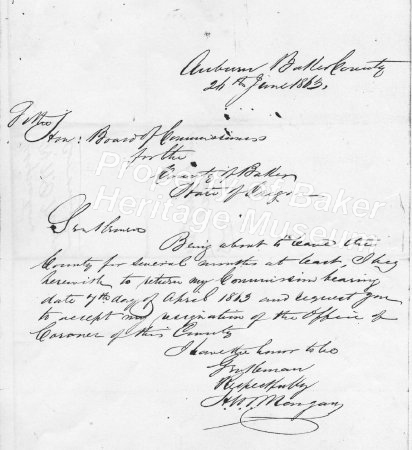 Auburn Baker County
24th June 1863.
To the
Hon: Board of Commissioners
for the
County of Baker
State of Oregon
Gentlemen
Being about to leave the
County for several months at least, I beg
herewith to return my Commission bearing
date 7th day of April 1863 and request you
to accept my resignation of the Office of
Coroner of this County
I have the honor to be
Gentlemen
Respectfully
Property of Baker
Heritage Museum